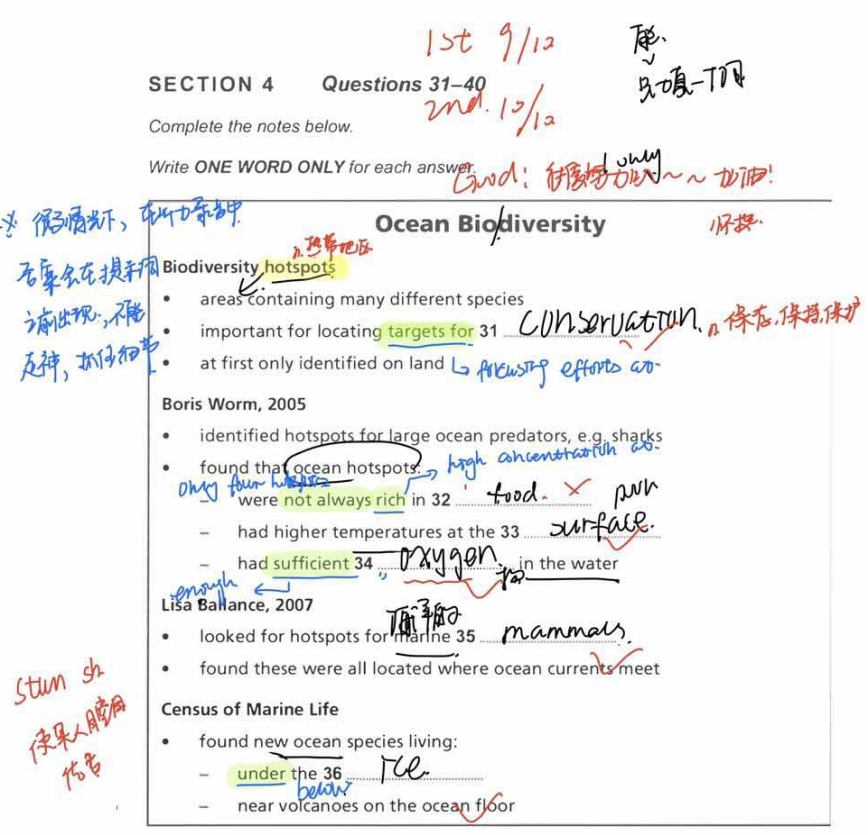 1st 9/12
SECTION 4 Questions 31–40
2nd. 10/12
Complete the notes below.
Write ONE WORD ONLY for each answer.
only
Good! 加油!
Ocean Biodiversity
n.热带地区
Biodiversity hotspots
areas containing many different species
important for locating targets for 31 conservation. n.保存,保持,保护
at first only identified on land focusing efforts
※ 很多情况下,在听力录音中
答案会在提示词
之前出现,不能
走神,抓住细节
Boris Worm, 2005
identified hotspots for large ocean predators, e.g. sharks
found that ocean hotspots:
high concentration
only four hotspots
– were not always rich in 32 food. ×
– had higher temperatures at the 33 surface.
– had sufficient 34 oxygen. in the water
enough
Lisa Ballance, 2007
looked for hotspots for marine 35 mammals.
found these were all located where ocean currents meet
stun sh
使某人
Census of Marine Life
found new ocean species living:
– under the 36 ice.
below
– near volcanoes on the ocean floor